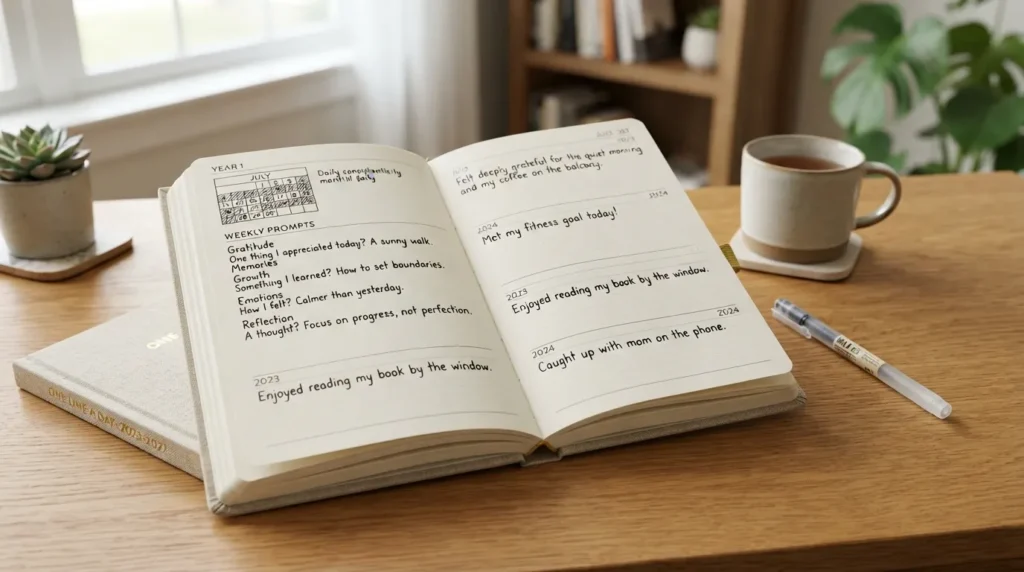 YEAR 1
JULY
Daily
WEEKLY PROMPTS
Gratitude
One thing I appreciated today? A sunny walk.
Memories
Growth
Something I learned? How to set boundaries.
Emotions
How I felt? Calmer than yesterday.
Reflection
A thought? Focus on progress, not perfection.
2023
Enjoyed reading my book by the window.
Felt deeply grateful for the quiet morning
and my coffee on the balcony.
2024
Met my fitness goal today!
2023
Enjoyed reading my book by the window.
2024
2024
Caught up with mom on the phone.
ONE LINE A DAY